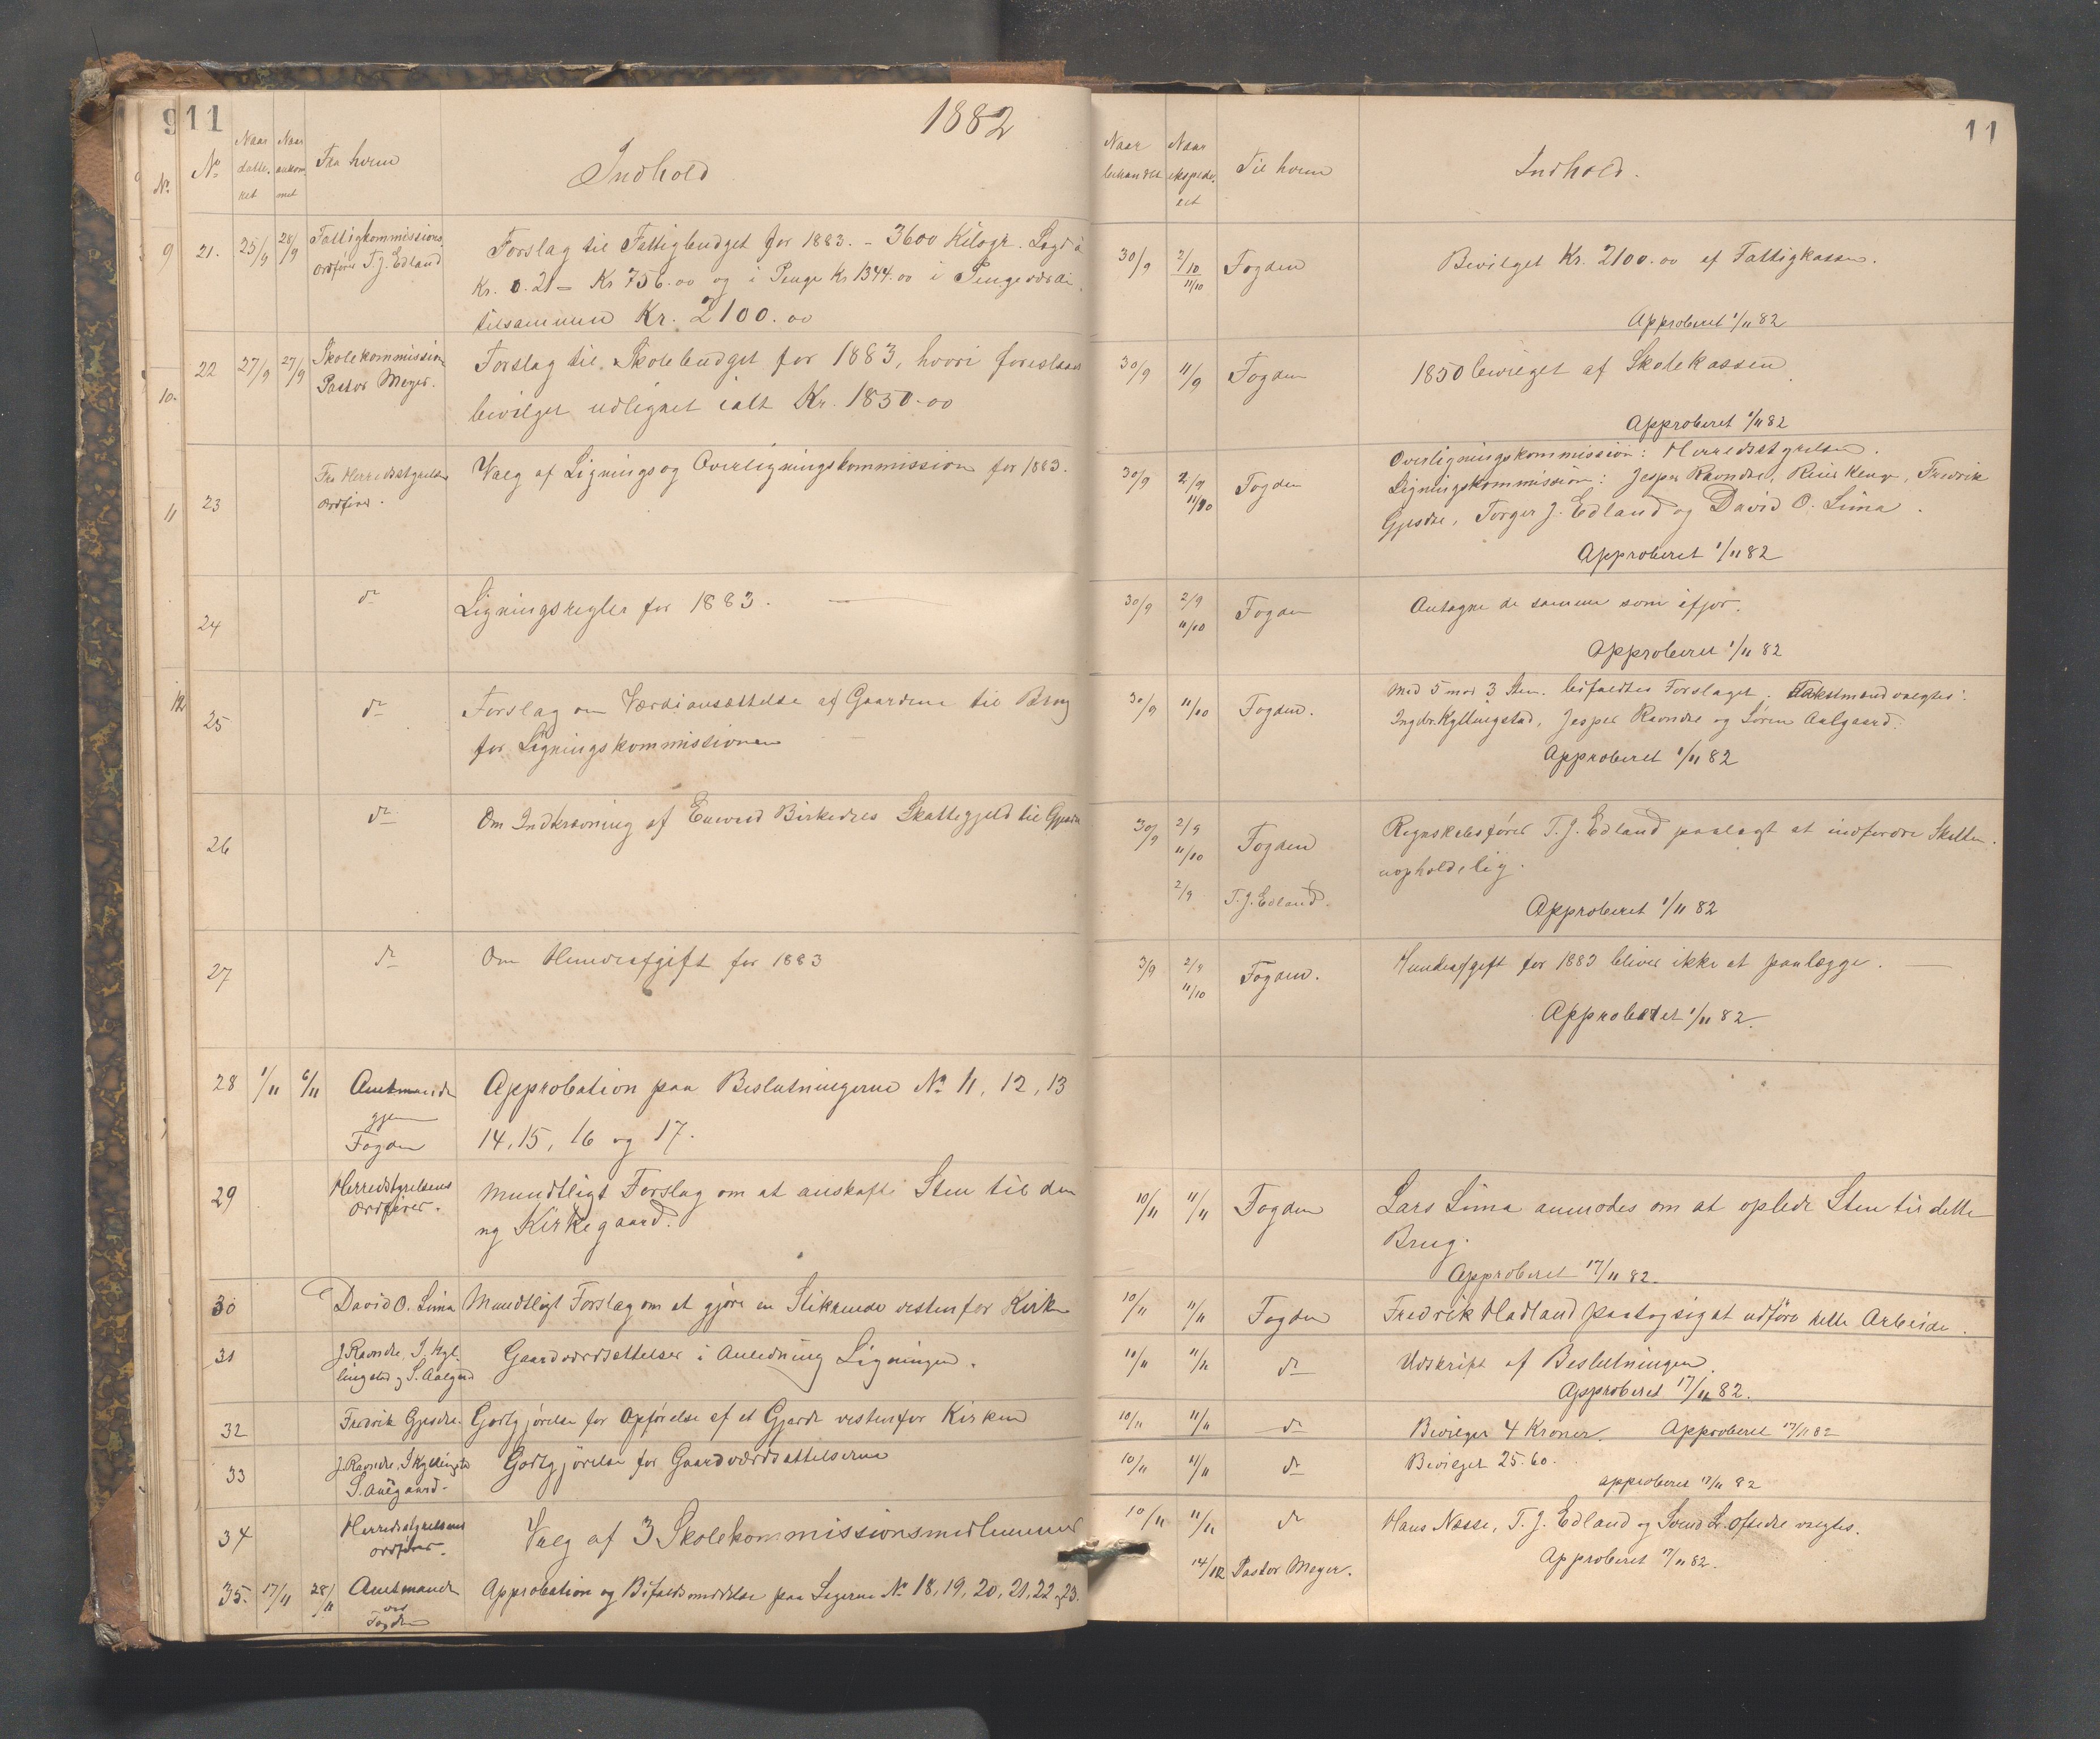 911
1882
No
No
Naar datteret
Naar ankommet
Fra hvem
Indhold
9
21.
25/9
28/9
Fattigkommissions
Ordfører T. J. Edland
Forslag til Fattigbudget for 1883. - 3600 Kilogr. Lagd à
Kr. 0.21 = Kr 756.00 og i Penge Kr 1344.00 i Pengeværdi,
tilsammen Kr. 2100.00
22
27/9
27/9
Skolekommission
Pastor Meyer.
Forslag til Skolebudget for 1883, hvori foreslaaes
bevilget udlignet ialt Kr. 1850-00
10.
11
23
Fra Herredsstyrelsens
Ordfører.
Valg af Lignings og Overligningskommission for 1883.
24
do
Ligningsregler for 1883.
12
25
do
Forslag om Værdiansættelse af Gaardene til Brug
for Ligningskommissionen
26
do
Om Inddrivning af Enevald Birkedals Skattegjeld til Gjesdal
27
do
Om Hundeafgift for 1883
28
1/11
6/11
Amtmanden
gjen
Fogden
Approbation paa Beslutningerne No 11, 12, 13
14, 15, 16 og 17.
29
Herredsstyrelsens
Ordfører.
Mundtligt Forslag om at anskaffe Sten til den
ny Kirkegaard.
30
David O. Lima
Mundtligt Forslag om at gjøre en Stikrende vestenfor Kirken
31
J. Ravndal, I. Kyl-
lingstad og S. Aalgaard
Gaardværdsættelser i Anledning Ligningen.
32
Fredrik Gjesdal
Godtgjørelse for Opførelse af et Gjærde vestenfor Kirken
33
J. Ravndal, I Kyllingstad
S. Aalgaard-
Godtgjørelse for Gaardværdsættelserne
34
Herredsstyrelsens
Ordfører.
Valg af 3 Skolekommissionsmedlemmer
35.
17/11
28/11
Amtmanden
ved
Fogden
Approbation og Bifaldsmeddelse paa Sagerne No 18, 19, 20, 21, 22 og 23.
11
Naar behandlet
Naar ekspederet
Til hvem
Indhold.
30/9
2/10
11/10
Fogden
Bevilget Kr. 2100.00 af Fattigkassen.
Approberet 1/11 82
30/9
11/9
Fogden
1850 bevilget af Skolekassen
Approberet 1/11 82
30/9
2/9
11/10
Fogden
Overligningskommission: Herredsstyrelsen.
Ligningskommission: Jesper Ravndal, Reier Kenv, Fredrik
Gjesdal, Torger J. Edland og David O. Lima.
Approberet 1/11 82
30/9
2/9
11/10
Fogden
Antagne de samme som ifjor.
Approberet 1/11 82
30/9
11/10
Fogden.
Med 5 mod 3 Stem. bifaldtes Forslaget. Takstmænd valgtes:
Ingebr. Kyllingstad, Jesper Ravndal og Søren Aalgaard.
Approberet 1/11 82
30/9
2/9
11/10
Fogden
2/9
T. J. Edland.
Regnskabsfører T. J. Edland paalagt at indfordre Skatten
uopholdelig.
Approberet 1/11 82
3/9
2/9
11/10
Fogden.
Hundeafgift for 1883 bliver ikke at paalægge.
Approberet 1/11 82.
10/11
11/11
Fogden
Lars Lima anmodes om at oplede Sten til dette
Brug.
Approberet 17/11 82.
10/11
11/11
Fogden
Fredrik Hadland paatog sig at udføre dette Arbeide.
10/11
11/11
do
Udskrift af Beslutningen.
Approberet 17/11 82.
10/11
11/11
do
Bevilget 4 Kroner. Approberet 17/11 82
10/11
11/11
do
Bevilget 25.60.
approberet 17/11 82
10/11
11/11
do
Hans Næsse, T. J. Edland og Svend L. Oftedal valgtes.
14/12
Pastor Meyer.
Approberet 17/11 82.